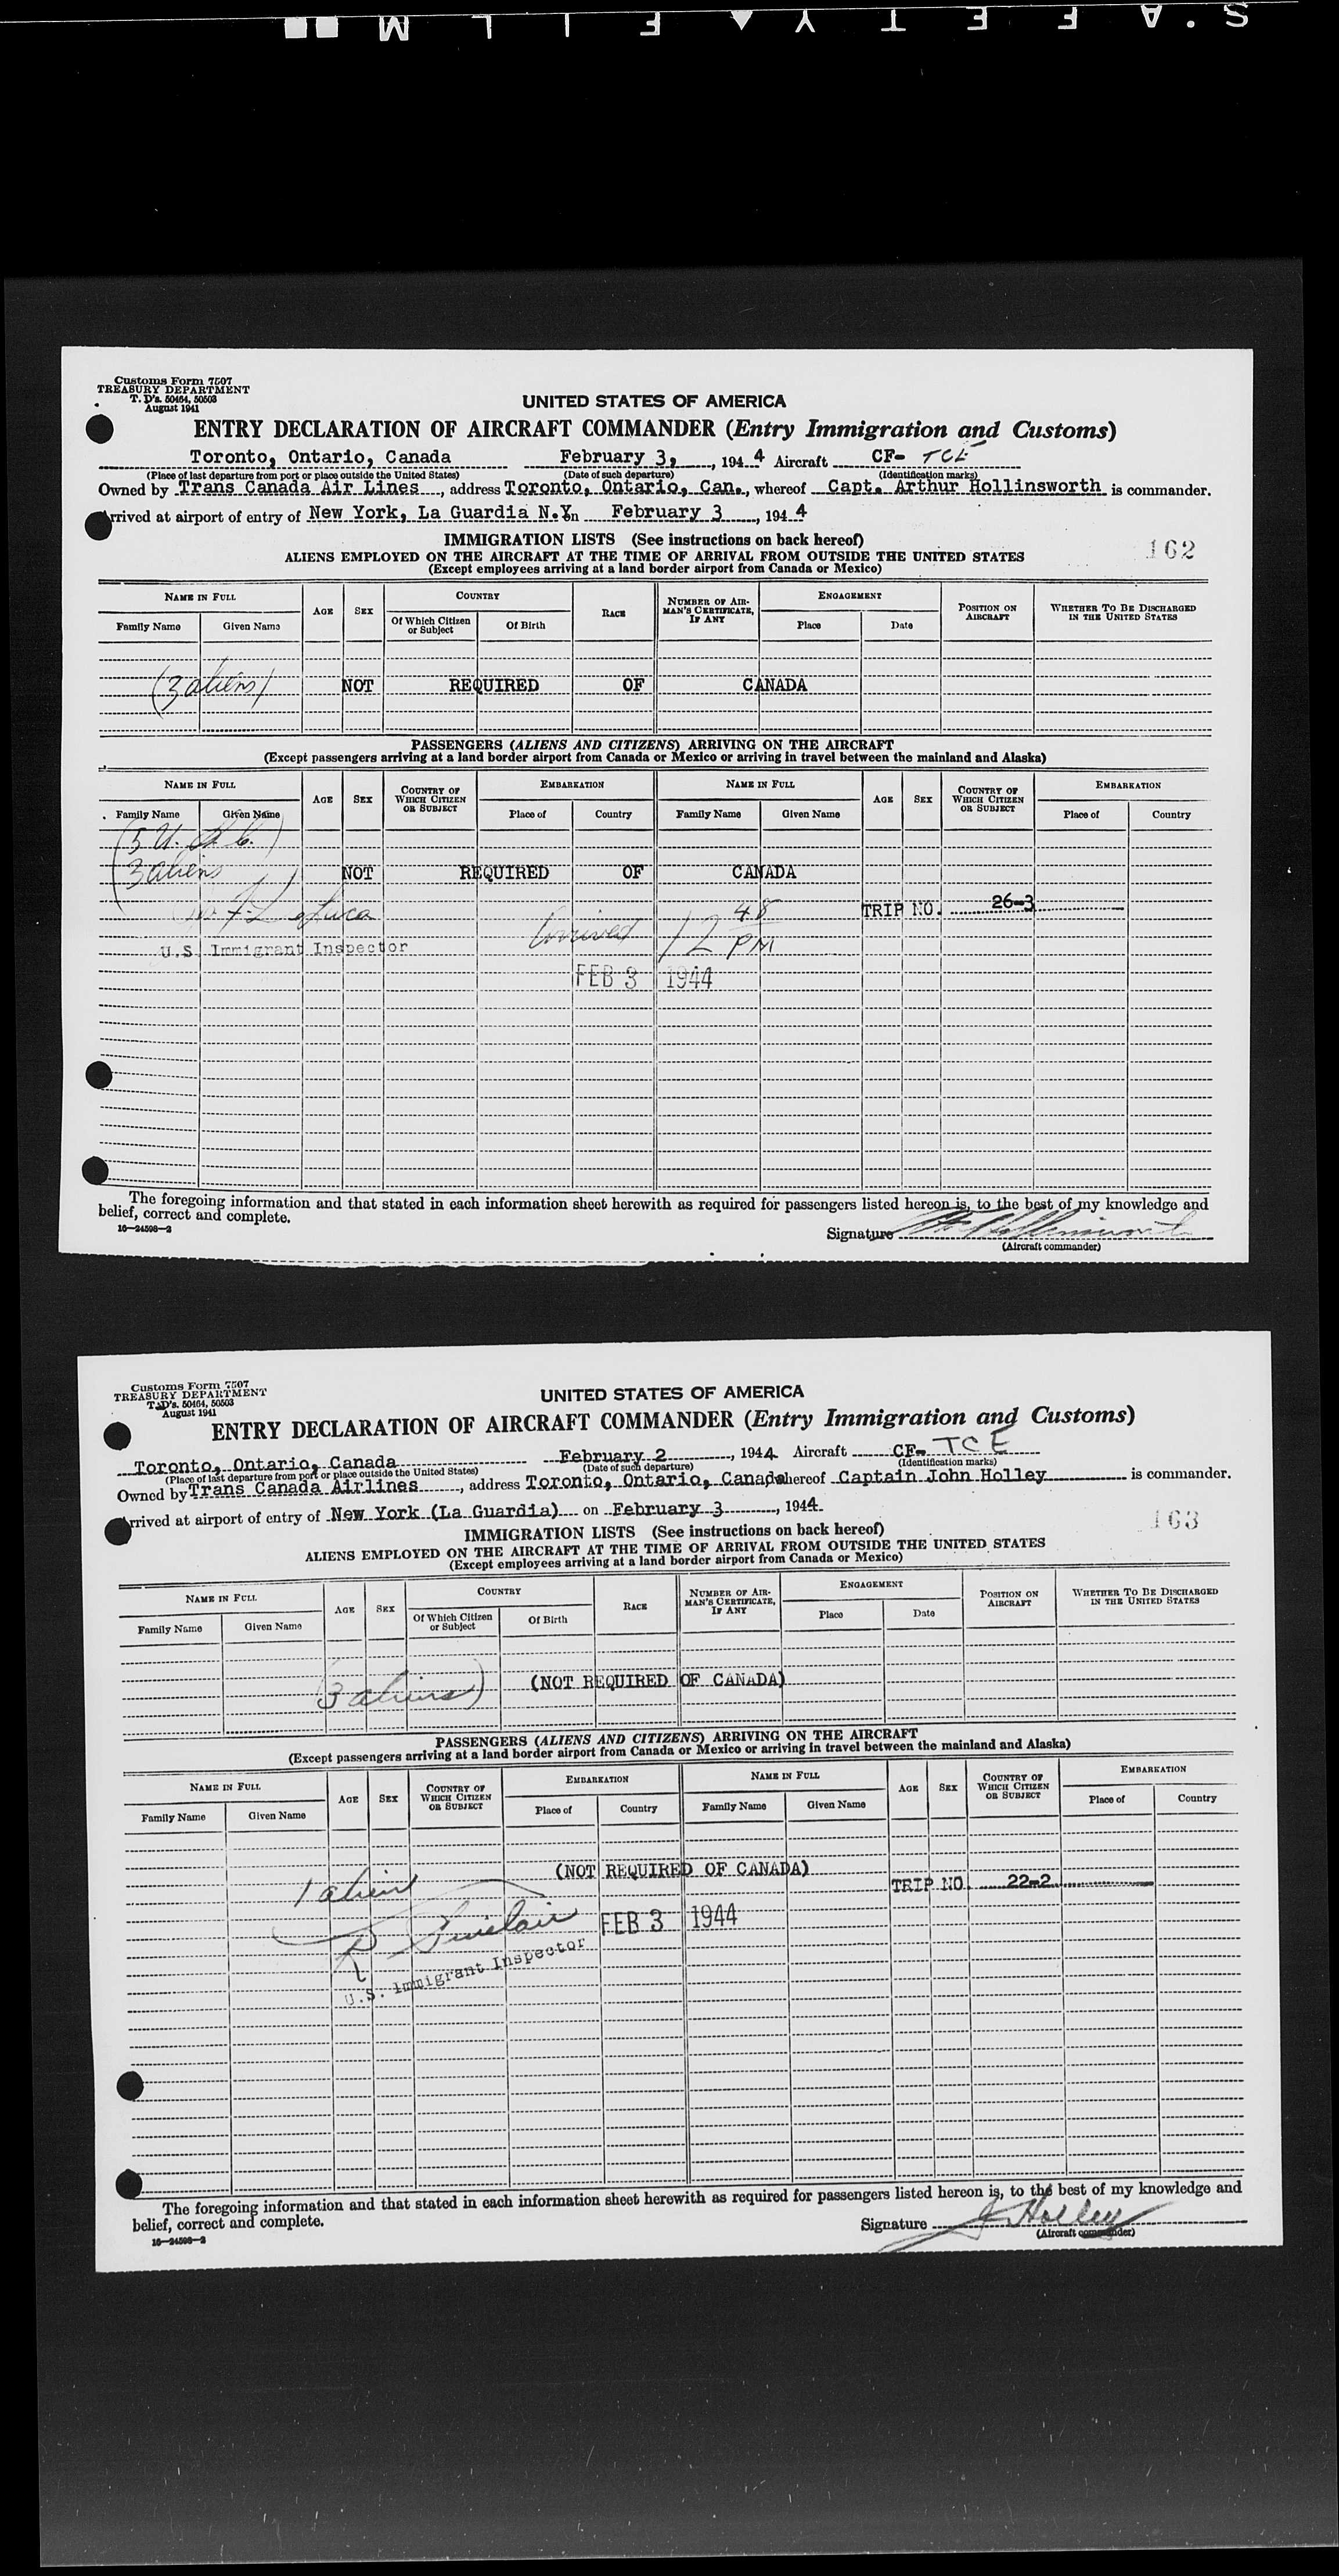 S.A F E T Y ▲ F I L M
Customs Form 7507
TREASURY DEPARTMENT
T. D's. 50464, 50503
August 1941
UNITED STATES OF AMERICA
ENTRY DECLARATION OF AIRCRAFT COMMANDER (Entry Immigration and Customs)
Toronto, Ontario, Canada February 3, 1944 Aircraft CF- TCE
(Place of last departure from port or place outside the United States) (Date of such departure) (Identification marks)
Owned by Trans Canada Air Lines, address Toronto, Ontario, Can., whereof Capt. Arthur Hollinsworth is commander.
Arrived at airport of entry of New York, La Guardia N.Y. on February 3, 1944
IMMIGRATION LISTS (See instructions on back hereof)
162
ALIENS EMPLOYED ON THE AIRCRAFT AT THE TIME OF ARRIVAL FROM OUTSIDE THE UNITED STATES
(Except employees arriving at a land border airport from Canada or Mexico)
NAME IN FULL AGE SEX COUNTRY RACE NUMBER OF AIRMAN'S CERTIFICATE, IF ANY ENGAGEMENT POSITION ON AIRCRAFT WHETHER TO BE DISCHARGED IN THE UNITED STATES
Family Name Given Name Of Which Citizen or Subject Of Birth Place Date
(3 aliens) NOT REQUIRED OF CANADA
PASSENGERS (ALIENS AND CITIZENS) ARRIVING ON THE AIRCRAFT
(Except passengers arriving at a land border airport from Canada or Mexico or arriving in travel between the mainland and Alaska)
NAME IN FULL AGE SEX COUNTRY OF WHICH CITIZEN OR SUBJECT EMBARKATION NAME IN FULL AGE SEX COUNTRY OF WHICH CITIZEN OR SUBJECT EMBARKATION
Family Name Given Name Place of Country Family Name Given Name Place of Country
(5 U. S. C.)
3 aliens NOT REQUIRED OF CANADA
TRIP NO. 26-3
Arrived 12 48 PM
U.S. Immigrant Inspector
FEB 3 1944
The foregoing information and that stated in each information sheet herewith as required for passengers listed hereon is, to the best of my knowledge and
belief, correct and complete.
16—24598—2
Signature
(Aircraft commander)
Customs Form 7507
TREASURY DEPARTMENT
T. D's. 50464, 50503
August 1941
UNITED STATES OF AMERICA
ENTRY DECLARATION OF AIRCRAFT COMMANDER (Entry Immigration and Customs)
Toronto, Ontario, Canada February 2, 1944 Aircraft CF- TCE
(Place of last departure from port or place outside the United States) (Date of such departure) (Identification marks)
Owned by Trans Canada Airlines, address Toronto, Ontario, Canada whereof Captain John Holley is commander.
Arrived at airport of entry of New York (La Guardia) on February 3, 1944
IMMIGRATION LISTS (See instructions on back hereof)
163
ALIENS EMPLOYED ON THE AIRCRAFT AT THE TIME OF ARRIVAL FROM OUTSIDE THE UNITED STATES
(Except employees arriving at a land border airport from Canada or Mexico)
NAME IN FULL AGE SEX COUNTRY RACE NUMBER OF AIRMAN'S CERTIFICATE, IF ANY ENGAGEMENT POSITION ON AIRCRAFT WHETHER TO BE DISCHARGED IN THE UNITED STATES
Family Name Given Name Of Which Citizen or Subject Of Birth Place Date
(3 aliens) (NOT REQUIRED OF CANADA)
PASSENGERS (ALIENS AND CITIZENS) ARRIVING ON THE AIRCRAFT
(Except passengers arriving at a land border airport from Canada or Mexico or arriving in travel between the mainland and Alaska)
NAME IN FULL AGE SEX COUNTRY OF WHICH CITIZEN OR SUBJECT EMBARKATION NAME IN FULL AGE SEX COUNTRY OF WHICH CITIZEN OR SUBJECT EMBARKATION
Family Name Given Name Place of Country Family Name Given Name Place of Country
(NOT REQUIRED OF CANADA)
1 alien TRIP NO. 22-2
Sinclair FEB 3 1944
U.S. Immigrant Inspector
The foregoing information and that stated in each information sheet herewith as required for passengers listed hereon is, to the best of my knowledge and
belief, correct and complete.
16—24598—2
Signature J Holley
(Aircraft commander)